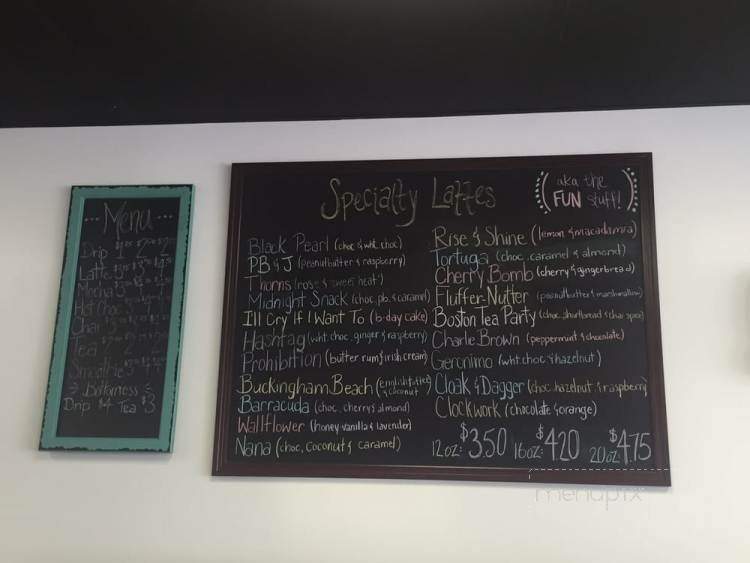 Menu
Drip
Latte
Mocha
Hot Choc
Chai
Tea
Smoothie
Bottomless
Drip $4 Tea $3
Specialty Lattes
aka the
FUN stuff!
Black Pearl (choc & wht. choc)
PB & J (peanutbutter & raspberry)
Thorns (rose & sweet heat)
Midnight Snack (choc, pb, & caramel)
I'll Cry If I Want To (b-day cake)
Hashtag (wht choc, ginger & raspberry)
Prohibition (butter rum & irish cream)
Buckingham Beach (english toffee
& coconut)
Barracuda (choc, cherry & almond)
Wallflower (honey vanilla & lavender)
Nana (choc, coconut & caramel)
Rise & Shine (lemon & macadamia)
Tortuga (choc, caramel & almond)
Cherry Bomb (cherry & gingerbread)
Fluffer-Nutter (peanutbutter & marshmallow)
Boston Tea Party (choc, shortbread & chai spice)
Charlie Brown (peppermint & chocolate)
Geronimo (wht.choc & hazelnut)
Cloak & Dagger (choc hazelnut & raspberry)
Clockwork (chocolate & orange)
12oz: $3.50 16oz: $4.20 20oz: $4.75
menupix